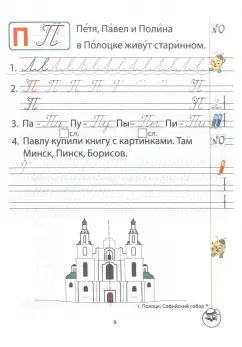 П П Пе́тя, Па́вел и Поли́на
в По́лоцке живу́т стари́нном.
№
1.
2. П П П П П
П П
3. Па - Па Пу - Пу Пы - Пы Пи - Пи
сл. сл.
4. Павлу купили книгу с картинками. Там
Минск, Пинск, Борисов.
№
г. Полоцк, Софийский собор *
9